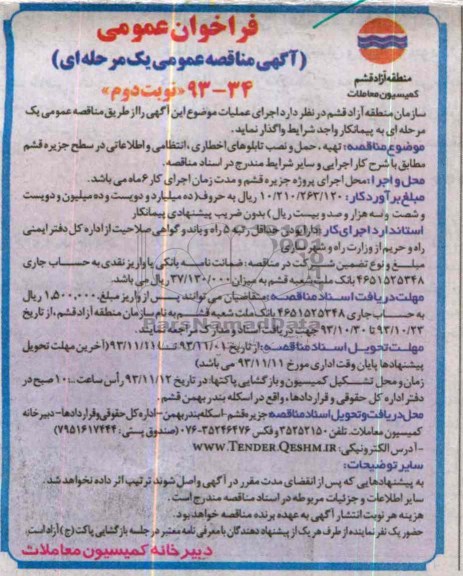 فراخوان عمومی
(آگهی مناقصه عمومی یک مرحله ای)
۳۴-۹۳ «نوبت دوم»
منطقه آزاد قشم
کمیسیون معاملات
سازمان منطقه آزاد قشم در نظر دارد اجرای عملیات موضوع این آگهی را از طریق مناقصه عمومی یک
مرحله ای به پیمانکار واجد شرایط واگذار نماید.
موضوع مناقصه: تهیه، حمل و نصب تابلوهای اخطاری، انتظامی و اطلاعاتی در سطح جزیره قشم
مطابق با شرح کار اجرایی و سایر شرایط مندرج در اسناد مناقصه.
محل و اجرا: محل اجرای پروژه جزیره قشم و مدت زمان اجرای کار ۶ ماه می باشد.
مبلغ برآورد کار: ۱۰/۲۱۰/۲۶۳/۱۲۰ ریال به حروف (ده میلیارد و دویست و ده میلیون و دویست
و شصت و سه هزار و صد و بیست ریال) بدون ضریب پیشنهادی پیمانکار
استاندارد اجرای کار: دارا بودن حداقل رتبه ۵ راه و باند و گواهی صلاحیت از اداره کل دفتر ایمنی
راه و حریم از وزارت راه و شهرسازی
مبلغ و نوع تضمین شرکت در مناقصه: ضمانت نامه بانکی یا واریز نقدی به حساب جاری
۴۶۵۱۵۲۵۳۴۸ بانک ملت شعبه قشم به میزان ۳۷/۱۳۰/۰۰۰ ریال می باشد.
مهلت دریافت اسناد مناقصه: متقاضیان می توانند پس از واریز مبلغ ۱,۵۰۰,۰۰۰ ریال
به حساب جاری ۴۶۵۱۵۲۵۳۴۸ بانک ملت شعبه قشم به نام سازمان منطقه آزاد قشم، از تاریخ
۹۳/۱۰/۲۳ تا ۹۳/۱۰/۳۰ جهت دریافت اسناد و مدارک مراجعه نمایند.
مهلت تحویل اسناد مناقصه: از تاریخ ۹۳/۱۱/۰۱ تا ۹۳/۱۱/۱۱ (آخرین مهلت تحویل
پیشنهادها پایان وقت اداری مورخ ۹۳/۱۱/۱۱ می باشد)
زمان و محل تشکیل کمیسیون و بازگشایی پاکتها: در تاریخ ۹۳/۱۱/۱۲ رأس ساعت ۱۰ صبح در
دفتر اداره کل حقوقی و قراردادها، واقع در اسکله بندر بهمن قشم.
محل دریافت و تحویل اسناد مناقصه: جزیره قشم-اسکله بندر بهمن-اداره کل حقوقی و قراردادها-دبیرخانه
کمیسیون معاملات. تلفن ۳۵۲۵۲۱۵۰ و فکس ۳۵۲۴۶۴۷۶-۰۷۶ (صندوق پستی: ۷۹۵۱۶۱۷۴۴۴)
-آدرس الکترونیکی: WWW.TENDER.QESHM.IR
سایر توضیحات:
به پیشنهادهایی که پس از انقضای مدت مقرر در آگهی واصل شوند ترتیب اثر داده نخواهد شد.
سایر اطلاعات و جزئیات مربوطه در اسناد مناقصه مندرج است.
هزینه هر نوبت انتشار آگهی به عهده برنده مناقصه خواهد بود.
حضور یک نفر نماینده از طرف هر یک از پیشنهاد دهندگان با معرفی نامه معتبر در جلسه بازگشایی پاکت (ج) آزاد است.
دبیرخانه کمیسیون معاملات